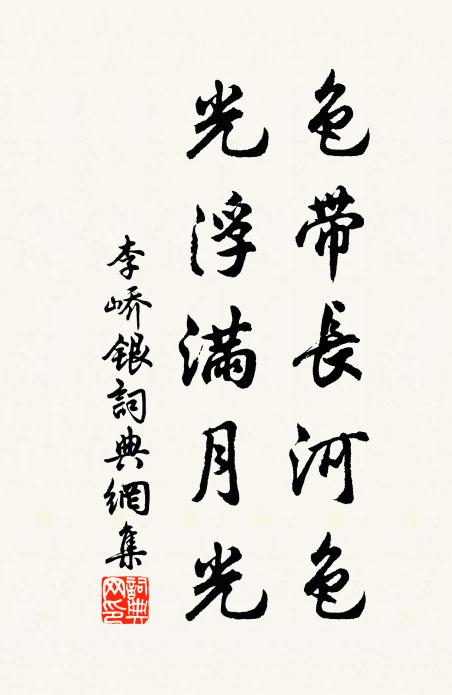 色帶長河色
光浮滿月光
李嶠銀詞典網集
詞典網印